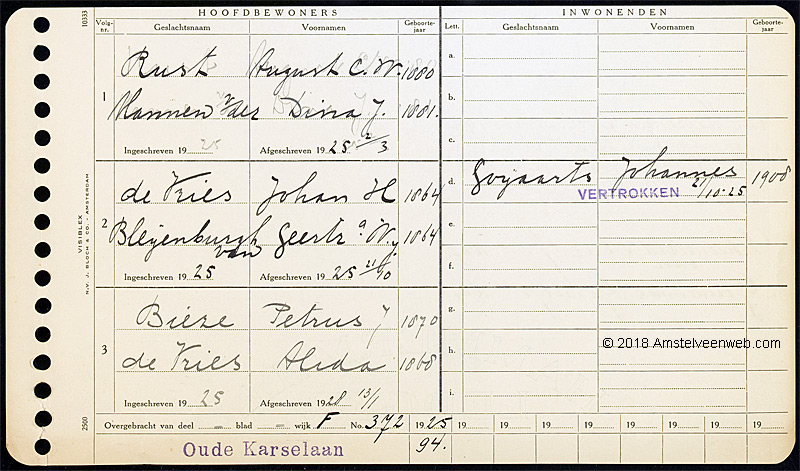 HOOFDBEWONERS INWONENDEN
Volg-nr. Geslachtsnaam Voornamen Geboorte-jaar Lett. Geslachtsnaam Voornamen Geboorte-jaar
10333
a.
Rust August C. W. 1880
1
b.
v. der Dina J. 1881.
c.
Ingeschreven 19 25 Afgeschreven 19 25 2/3
de Vries Johan H 1864
d. Gojaarts Johannes 1908
VERTROKKEN 21/10-25
2
e.
Bleijenburgh van Geertr a W. J. 1864
f.
Ingeschreven 19 25 Afgeschreven 19 25 21/10
g.
Bieze Petrus J 1870
3
h.
de Vries Alida 1868
© 2018 Amstelveenweb.com
i.
Ingeschreven 19 25 Afgeschreven 19 28 13/1
VISIBLEX
N.V. J. BLOCH & CO. - AMSTERDAM
2500
Overgebracht van deel blad wijk F No. 372 1925 19 19 19 19 19 19 19
Oude Karselaan 94.